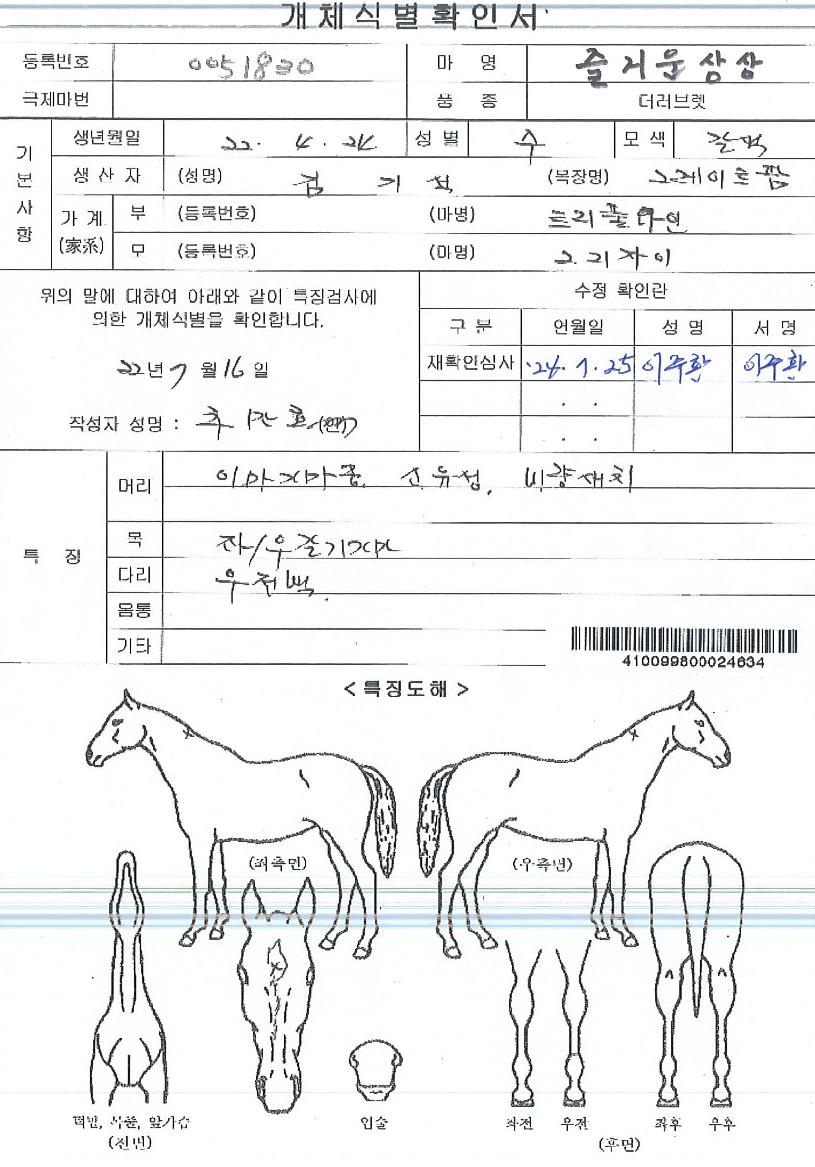 개체식별확인서
등록번호 0051830 마 명 즐거운삼상
국제마번 품 종 더러브렛
기본사항
생년월일 22. 4. 24 성별 수 모색 갈색
생산자 (성명) 김 기 석 (목장명) 그레이트팜
가계(家系) 부 (등록번호) (마명) 트리플다인
모 (등록번호) (마명) 그리자이
위의 말에 대하여 아래와 같이 특징검사에
의한 개체식별을 확인합니다.
22년 7 월 16 일
작성자 성명 :
수정 확인란
구 분 언월일 성 명 서 명
재확인심사 '24. 1. 25 이주환 이주환
특 징
머리 이마가마중, 산유성, 비량새치
목 좌/우갈기가마
다리 우전백.
몸통
기타
410099800024634
< 특징도해 >
(좌측면) (우측면)
턱밑, 목줄, 앞가슴
(전면)
입술
좌전 우전 좌후 우후
(후면)